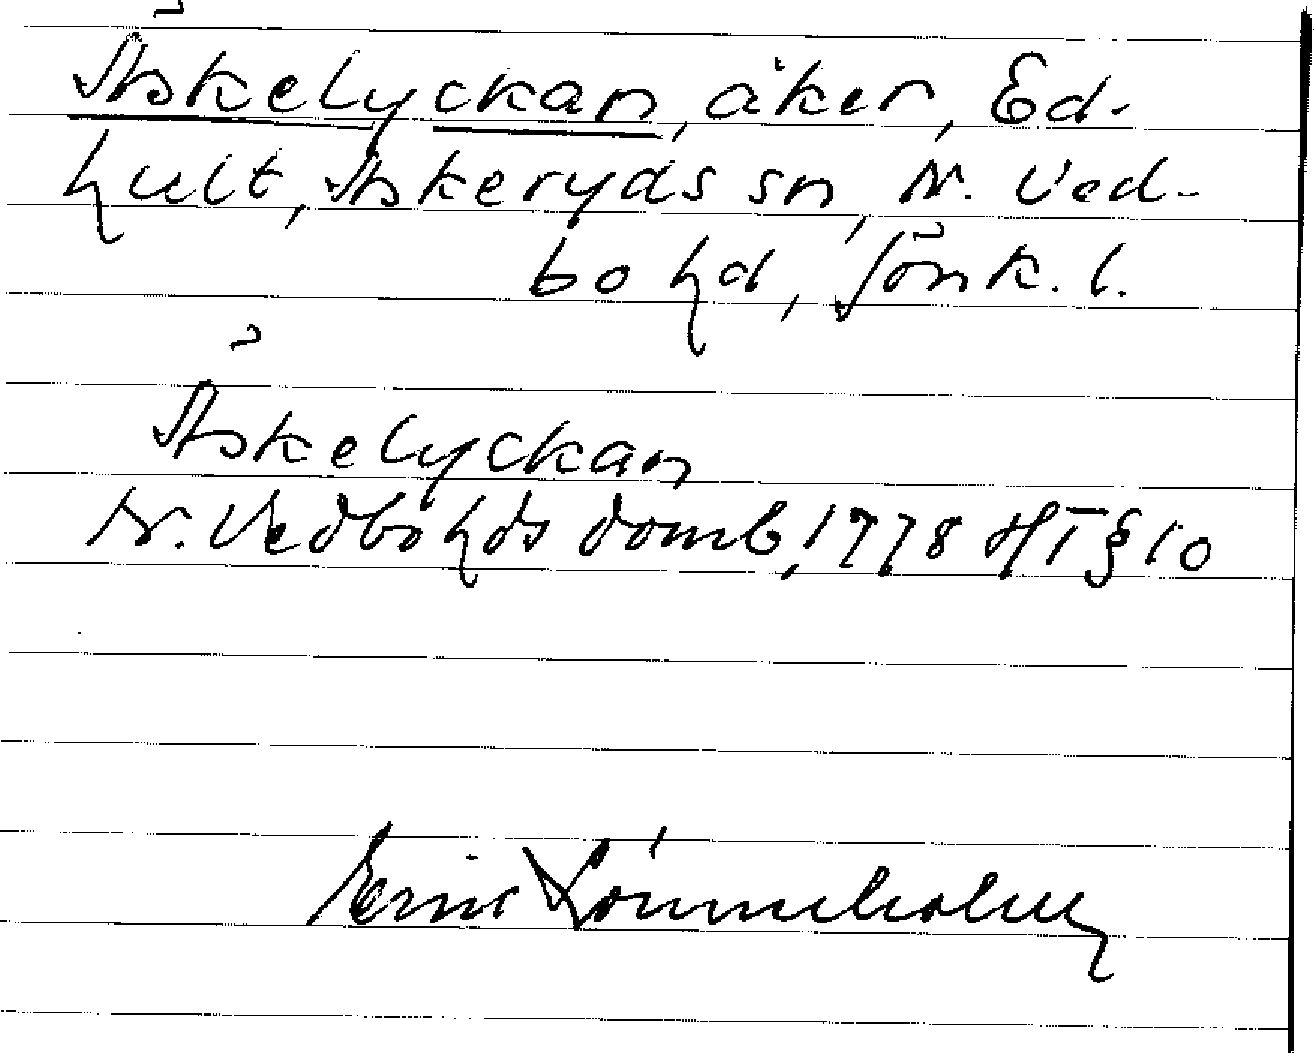 Äskelyckan, åker, Ed-
hult, Askeryds sn, N. Ved-
bo hd, Jönk. l.
Äskelyckan
N. Vedbo hds domb, 1778 HT § 10
Eric